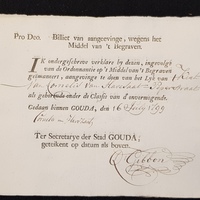 Pro Deo. Billiet van aangeevinge, wegens het
Middel van 't Begraven.
IK ondergeschreve verklare by deezen, ingevolgt
van de Ordonnantie op 't Middel van 't Begraven
geëmaneert, aangeevinge te doen van het Lyk van
van Cornelis van
als gehorende onder de Classis van d'onvermogende.
Gedaan binnen GOUDA, den 16 1799
Ter Secretarye der Stad GOUDA,
getekent op datum als boven.